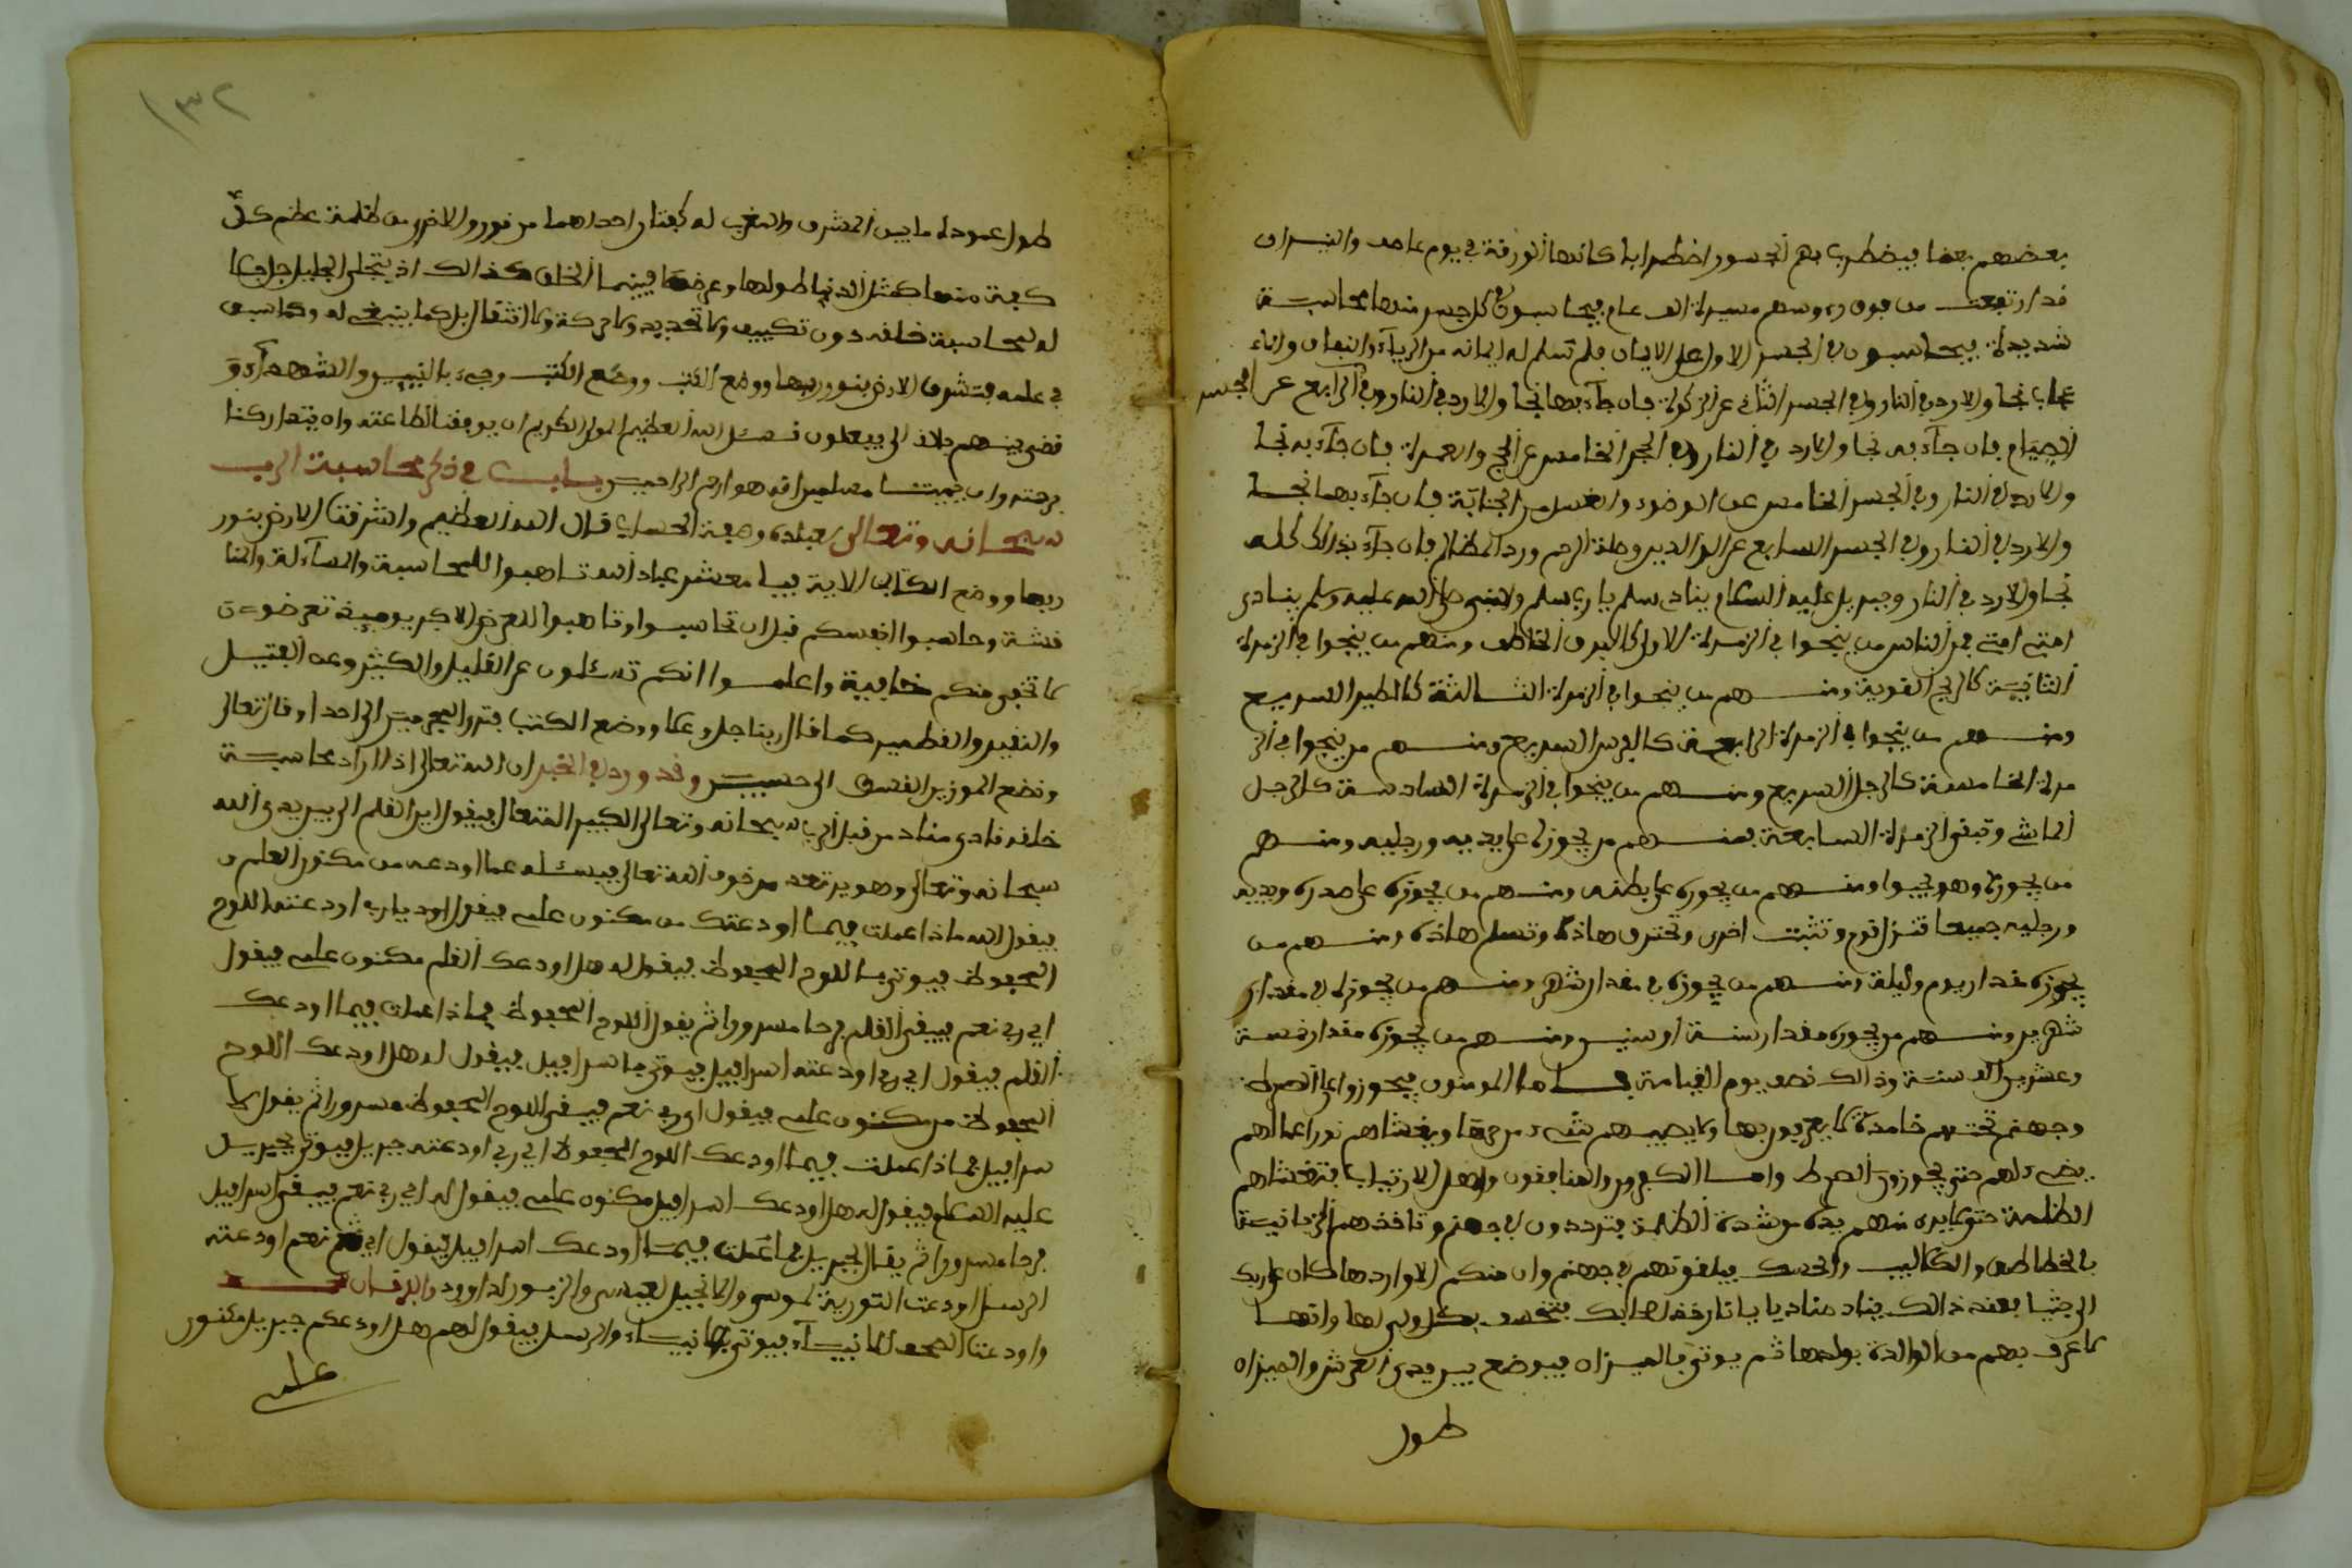 بعضهم بعضا فيضطرب بهم الجسور اضطرابا كانها الورقة في يوم عاصف والنيران
قد ارتفعت من فوق رءوسهم مسيرة الف عام فيحاسبون في كل جسر منها محاسبة
شديدة فيحاسبون في الجسر الاول على الايمان فلم تسلم له ايمانه من الرياء والنفاق
نجا والا ردي في النار وفي الجسر الثاني عن الزكوة فان جآء بها نجا والا رد في النار وفي الرابع عن الجسر
الصيام فان جآء به نجا والا رد في النار وفي الجسر الخامس عن الحج والعمرة فان جآء به نجا
والا رد في النار وفي الجسر الخامس عن الوضوء والغسل من الجنابة فان جآء بهما نجا
والا رد في النار وفي الجسر السابع عن الوالدين وصلة الرحم ورد المظالم فان جآء بذالك كله
نجا والا رد في النار وجبريل عليه السلام يناد سلم يا رب سلم والنبي صلى الله عليه وسلم ينادى
امتي امتي فمن الناس من ينجوا في الزمرة الاولى كالبرق الخاطف ومنهم من ينجوا في الزمرة
الثانية كالريح القوية ومنهم من ينجوا في الزمرة الثالثة كالطير السريع
ومنهم من ينجوا في الزمرة الرابعة كالفرس السريع ومنهم من ينجوا في الز
مرة الخامسة كالرجل السريع ومنهم من ينجوا في الزمرة السادسة كالرجل
الماشي وتبقى الزمرة السابعة فمنهم من يجوزه على يديه ورجليه ومنهم
من يجوزه وهو يحبوا ومنهم من يجوزه على بطنه ومنهم من يجوزه على صدره ويديه
ورجليه جميعا فتزل قوم وتثبت اخرى وتحترق هاذه وتسلم هاذه ومنهم من
يجوزه مقدار يوم وليلة ومنهم من يجوزه في مقدار شهر ومنهم من يجوزه في مقدار
شهرين ومنهم من يجوزه مقدار سنة او سنين ومنهم من يجوزه مقدار خمسة
وعشرين الف سنة وذالك نصف يوم القيامة فاما المومنون فيجوزوا على الصرط
وجهنم تحتهم خامدة لا يعرفون بها ولا يصيبهم شيء من حرها ويغشاهم نور اعمالهم
يضيء لهم حتى يجوزون الصرط واما الكفرون والمنافقون واهل الارتياب فتغشاهم
الظلمة حتى لا يرى منهم يده من شدة الظلمة فيترددون في جهنم وتاخذهم الزبانية
بالخطاطيف والكلاليب والحسك فيلقوتهم في جهنم وان منكم الا واردها كان على ربك
الى جثيا بعند ذالك يناد مناد يا
لاعرف بهم من الوالدة بولدها ثم يوتى بالميزان فيوضع بين يدي العرش والميزان
طول
١٣٢
طول عموده ما بين المشرق والمغرب له كفتان احداهما من نور والاخرى من ظلمة عظم كل
كفة منها كمثل الدنيا طولها وعرضها فبينما الخلق كذالك اذ يتجلى الجليل جل جلا
له لمحاسبة خلقه دون تكييف ولا تحديد ولا حركة ولا انتقال بل كما ينبغي له وكما سبق
في علمه فتشرق الارض بنور ربها ووضع الكتب وجيء بالنبيين والشهدآء و
قضى بينهم الى يفعلون فنسئل الله العظيم المولى الكريم ان يوفقنا لطاعته وان يتداركنا
برحمته وان يميتنا مسلمين انه هو ارحم الراحمين باب في ذكر محاسبة الرب
سبحانه وتعالى لعباده وصفة الحساب قال الله العظيم واشرقت الارض بنور
ربها ووضع الكتاب الاية فيا معشر عباد الله تاهبوا للمحاسبة والمسآءلة والمنا
قشة وحاسبوا انفسكم قبل ان تحاسبوا وتاهبوا للعرض الاكبر يوميذ تعرضون
لا تخفى منكم خافية واعلموا انكم تسئلون عن القليل والكثير وعن الفتيل
والنقير والقطمير كما قال ربنا جل وعلا ووضع الكتب فترى المجرمين الى احدا وقال تعالى
ونضع الموزين القسط الى حسبين وقد ورد في الخبر ان الله تعالى اذا اراد محاسبة
خلقه نادى مناد من قبل الرب سبحانه وتعالى الكبير المتعال فيقول اين القلم الى بين يدى الله
سبحانه وتعالى وهو يرتعد من خوف الله تعالى فيسئله عما اودعه من مكنون العلم و
فيقول الله ماذا عملت فيما اودعتك من مكنون علمي فيقول يارب اودعته اللوح
المحفوظ فيوتى باللوح المحفوظ فيقول له هل اودعك القلم مكنون علمي فيقول
اي رب نعم فيبقى القلم فرحا مسرورا ثم يقول للوح المحفوظ فماذا عملت فيما اودعك
القلم فيقول اي رب اودعته اسرافيل فيوتى باسرافيل فيقول له هل اودعك اللوح
المحفوظ من مكنون علمي فيقول اي رب نعم فيبقى اللوح المحفوظ مسرورا ثم يقول لا
سرافيل فماذا عملت فيما اودعك اللوح المحفوظ اي رب اودعته جبريل فيوتى بجبريل
عليه السلام فيقول له هل اودعك اسرافيل مكنون علمي فيقول له اي رب نعم فيبقى اسرافيل
فرحا مسرورا ثم يقال لجبريل فما عملت فيما اودعك اسرافيل فيقول اي نعم اودعته
الرسل اودعت التورية لموسى والانجيل لعيسى والزبور لداوود والفرقان لمحمد
واودعت الصحف الانبيآء فيوتى بالانبياء والرسل فيقول لهم هل اودعكم جبريل مكنون
علمي